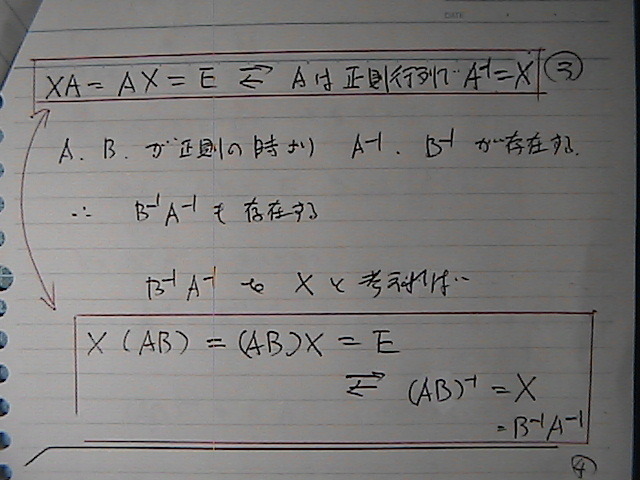 DATE
XA = AX = E ⇄ Aは正則行列で A⁻¹ = X ③
A、B、が正則の時より A⁻¹、B⁻¹ が存在する
∴ B⁻¹A⁻¹も存在する
B⁻¹A⁻¹ を X と考えれば…
X(AB) = (AB)X = E
⇄ (AB)⁻¹ = X
= B⁻¹A⁻¹
④